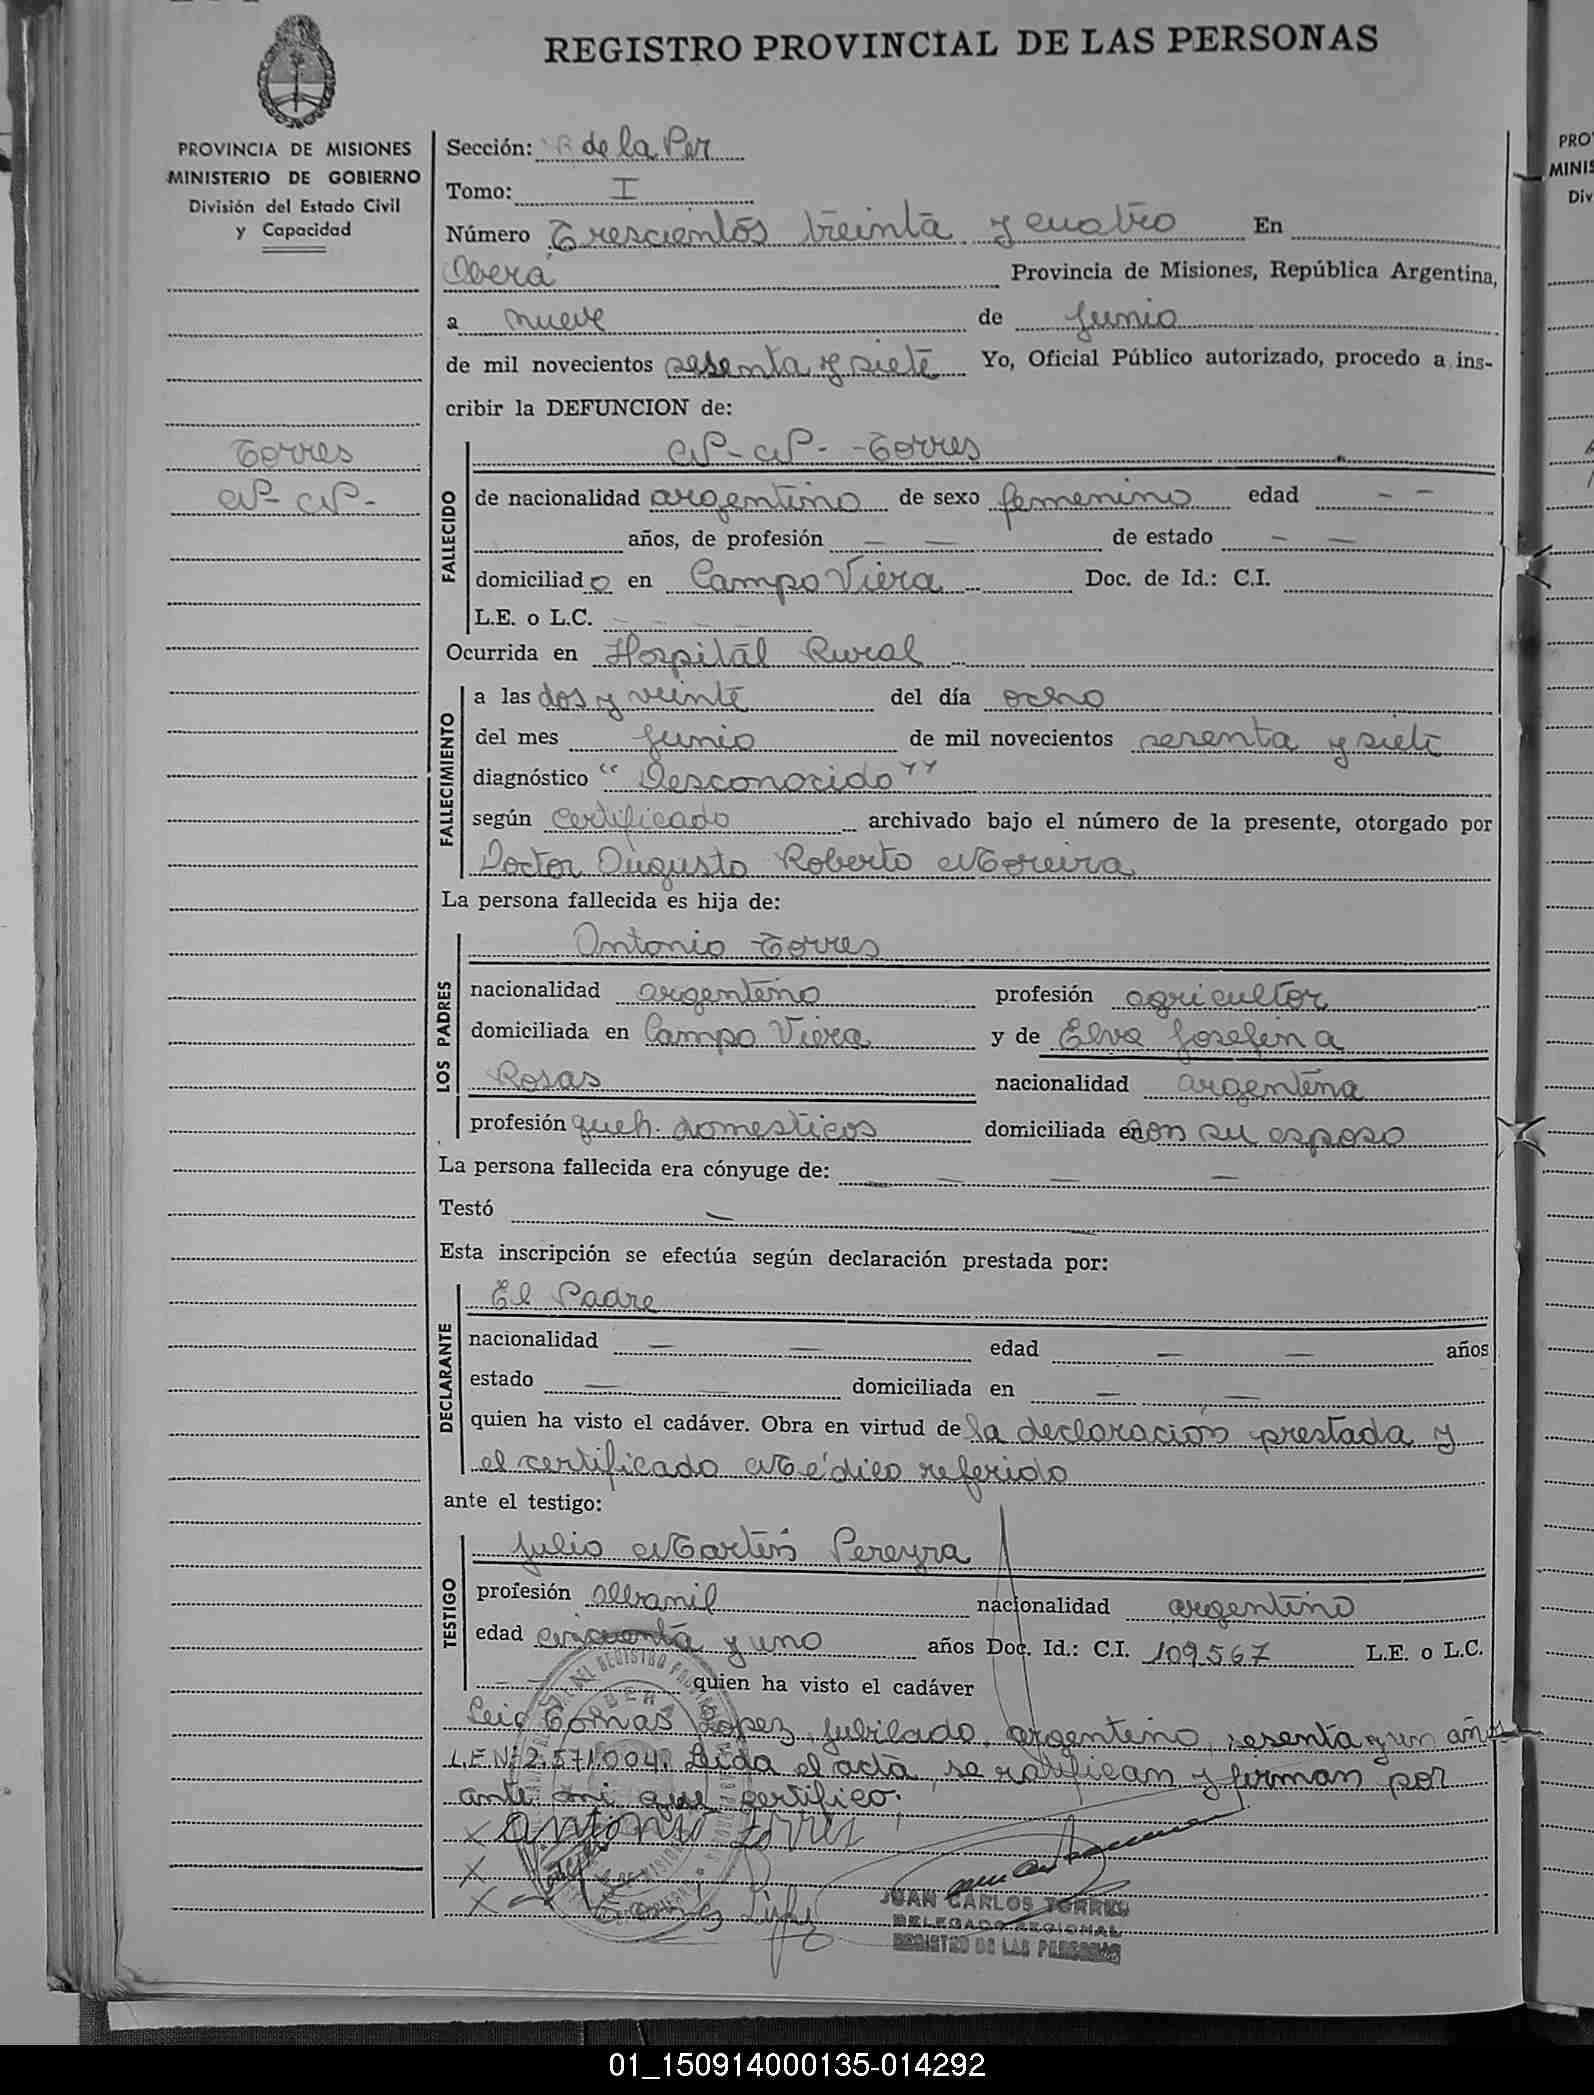 REGISTRO PROVINCIAL DE LAS PERSONAS
PROVINCIA DE MISIONES
MINISTERIO DE GOBIERNO
División del Estado Civil
y Capacidad
Sección: R de la Per
Tomo: I
Número Trescientos treinta y cuatro En
Oberá Provincia de Misiones, República Argentina,
a nueve de Junio
de mil novecientos sesenta y siete Yo, Oficial Público autorizado, procedo a ins-
cribir la DEFUNCION de:
Torres
N- N-
FALLECIDO
N- N- -Torres
de nacionalidad argentino de sexo femenino edad - -
años, de profesión - - de estado - -
domiciliado en Campo Viera Doc. de Id.: C.I.
L.E. o L.C. - - - -
Ocurrida en Hospital Rural
FALLECIMIENTO
a las dos y veinte del día ocho
del mes Junio de mil novecientos sesenta y siete
diagnóstico "Desconocido"
según certificado archivado bajo el número de la presente, otorgado por
Doctor Augusto Roberto Moreira
La persona fallecida es hija de:
LOS PADRES
Antonio Torres
nacionalidad argentino profesión agricultor
domiciliada en Campo Viera y de Elva Josefina
Rosas nacionalidad argentina
profesión queh. domesticos domiciliada en con su esposo
La persona fallecida era cónyuge de: - - - -
Testó -
Esta inscripción se efectúa según declaración prestada por:
DECLARANTE
El Padre
nacionalidad - - edad - - años
estado - - domiciliada en - -
quien ha visto el cadáver. Obra en virtud de la declaración prestada y
el certificado Médico referido
ante el testigo:
TESTIGO
Julio Martín Pereyra
profesión albamil nacionalidad argentino
edad cincuenta y uno años Doc. Id.: C.I. 109.567 L.E. o L.C.
- - quien ha visto el cadáver
Tomas Lopez, jubilado, argentino, sesenta y un años
L.E.Nº 2.571.004. Leída el acta, se ratifican y firman por
ante mi que certifico.
x Antonio Torres
x
x
JUAN CARLOS TORRES
DELEGADO REGIONAL
REGISTRO DE LAS PERSONAS
PRO
MINIS
Div
01_150914000135-014292